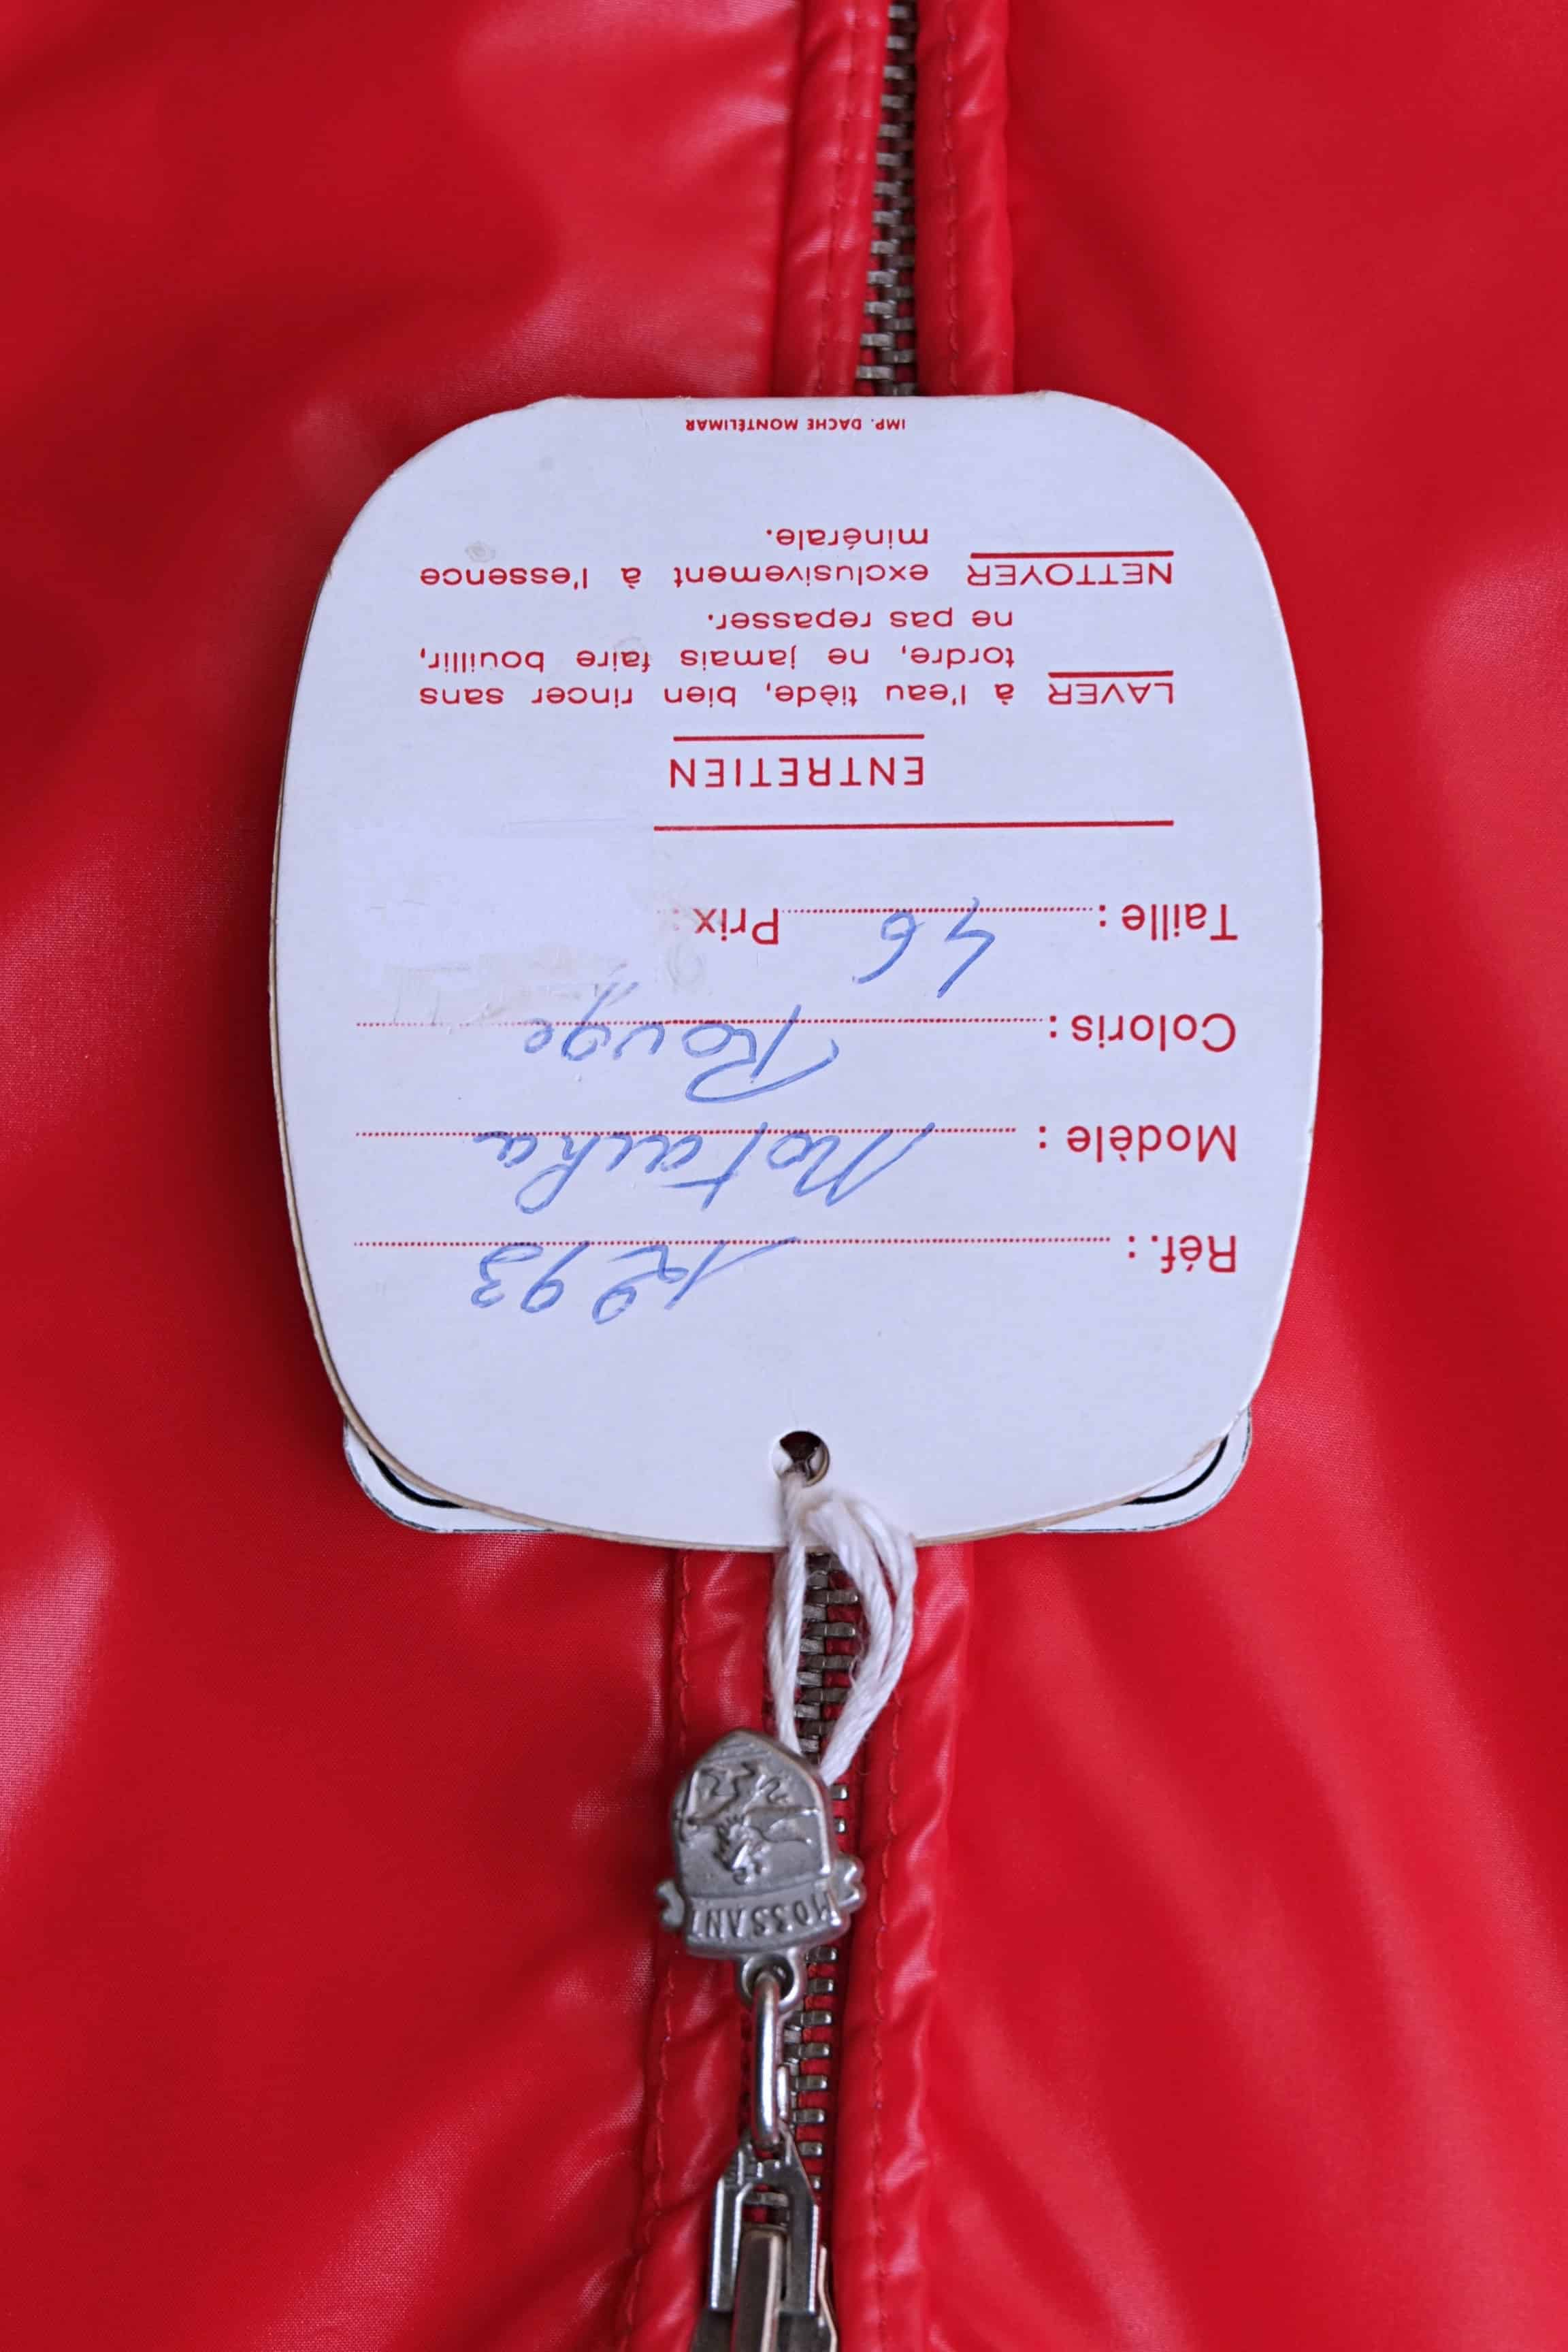 Réf. : 1293
Modèle :
Coloris : Rouge
Taille : 46 Prix :
ENTRETIEN
LAVER à l'eau tiède, bien rincer sans
tordre, ne jamais faire bouillir,
ne pas repasser.
NETTOYER exclusivement à l'essence
minérale.
IMP. DACHE MONTÉLIMAR
MOSSANT